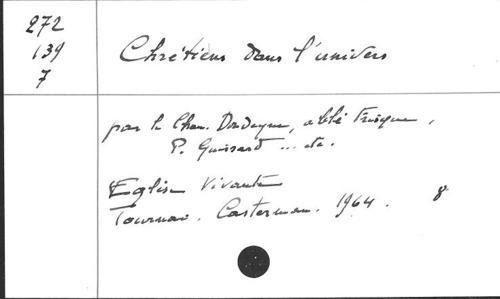 272
139
7
Chrétiens dans l'univers
par le Chan. abbé
P. Guissard ... etc.
Eglise Vivante
Tournai. Casterman. 1964. 8°